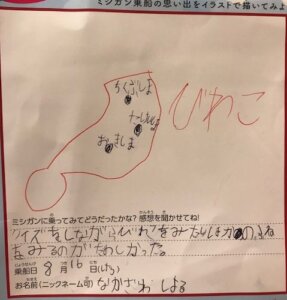 ミシガン乗船の思い出をイラストで描いてみよ
ちくぶしま
びわこ
おきしま
ミシガンに乗ってみてどうだったかな?感想を聞かせてね!
クイズをしながらびわこをみたり
をみるのがたのしかった。
乗船日 8月16日
お名前(ニックネーム可) ながさわ